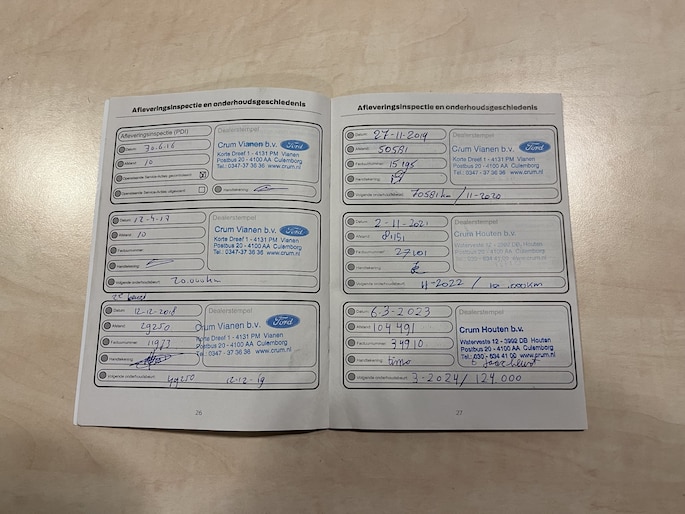 Afleveringsinspectie en onderhoudsgeschiedenis
Afleveringsinspectie (PDI)
Datum: 30.6.16
Afstand: 10
Openstaande Serviceacties gecontroleerd
Openstaande Serviceacties uitgevoerd
Dealerstempel
Crum Vianen b.v.
Ford
Korte Dreef 1 - 4131 PM Vianen
Postbus 20 - 4100 AA Culemborg
Tel.: 0347-37 36 36 www.crum.nl
Handtekening:
Datum: 12-4-17
Afstand: 10
Factuurnummer:
Handtekening:
Volgende onderhoudsbeurt: 20.000km
Dealerstempel
Crum Vianen b.v.
Ford
Korte Dreef 1 - 4131 PM Vianen
Postbus 20 - 4100 AA Culemborg
Tel.: 0347-37 36 36 www.crum.nl
2e beurt
Datum: 12-12-2018
Afstand: 29250
Factuurnummer:
Handtekening:
Volgende onderhoudsbeurt: 49250 12-12-19
Dealerstempel
Crum Vianen b.v.
Ford
Korte Dreef 1 - 4131 PM Vianen
Postbus 20 - 4100 AA Culemborg
Tel.: 0347 - 37 36 36 www.crum.nl
26
Afleveringsinspectie en onderhoudsgeschiedenis
Datum: 27-11-2019
Afstand: 50581
Factuurnummer: 15195
Handtekening:
Volgende onderhoudsbeurt: 70581km / 11-2020
Dealerstempel
Crum Vianen b.v.
Ford
Korte Dreef 1 - 4131 PM Vianen
Postbus 20 - 4100 AA Culemborg
Tel.: 0347-37 36 36 www.crum.nl
Datum: 2-11-2021
Afstand: 81151
Factuurnummer: 27101
Handtekening:
Volgende onderhoudsbeurt: 11-2022 /
Dealerstempel
Crum Houten b.v.
Waterveste 12 - 3992 DB Houten
Postbus 20 - 4100 AA Culemborg
Datum: 6-3-2023
Afstand: 104491
Factuurnummer: 34910
Handtekening: timo
Volgende onderhoudsbeurt: 3-2024 / 124.000
Dealerstempel
Crum Houten b.v.
Waterveste 12 - 3992 DB Houten
Postbus 20 - 4100 AA Culemborg
Tel.: 030 - 634 41 00 www.crum.nl
6 jaar beurt
27